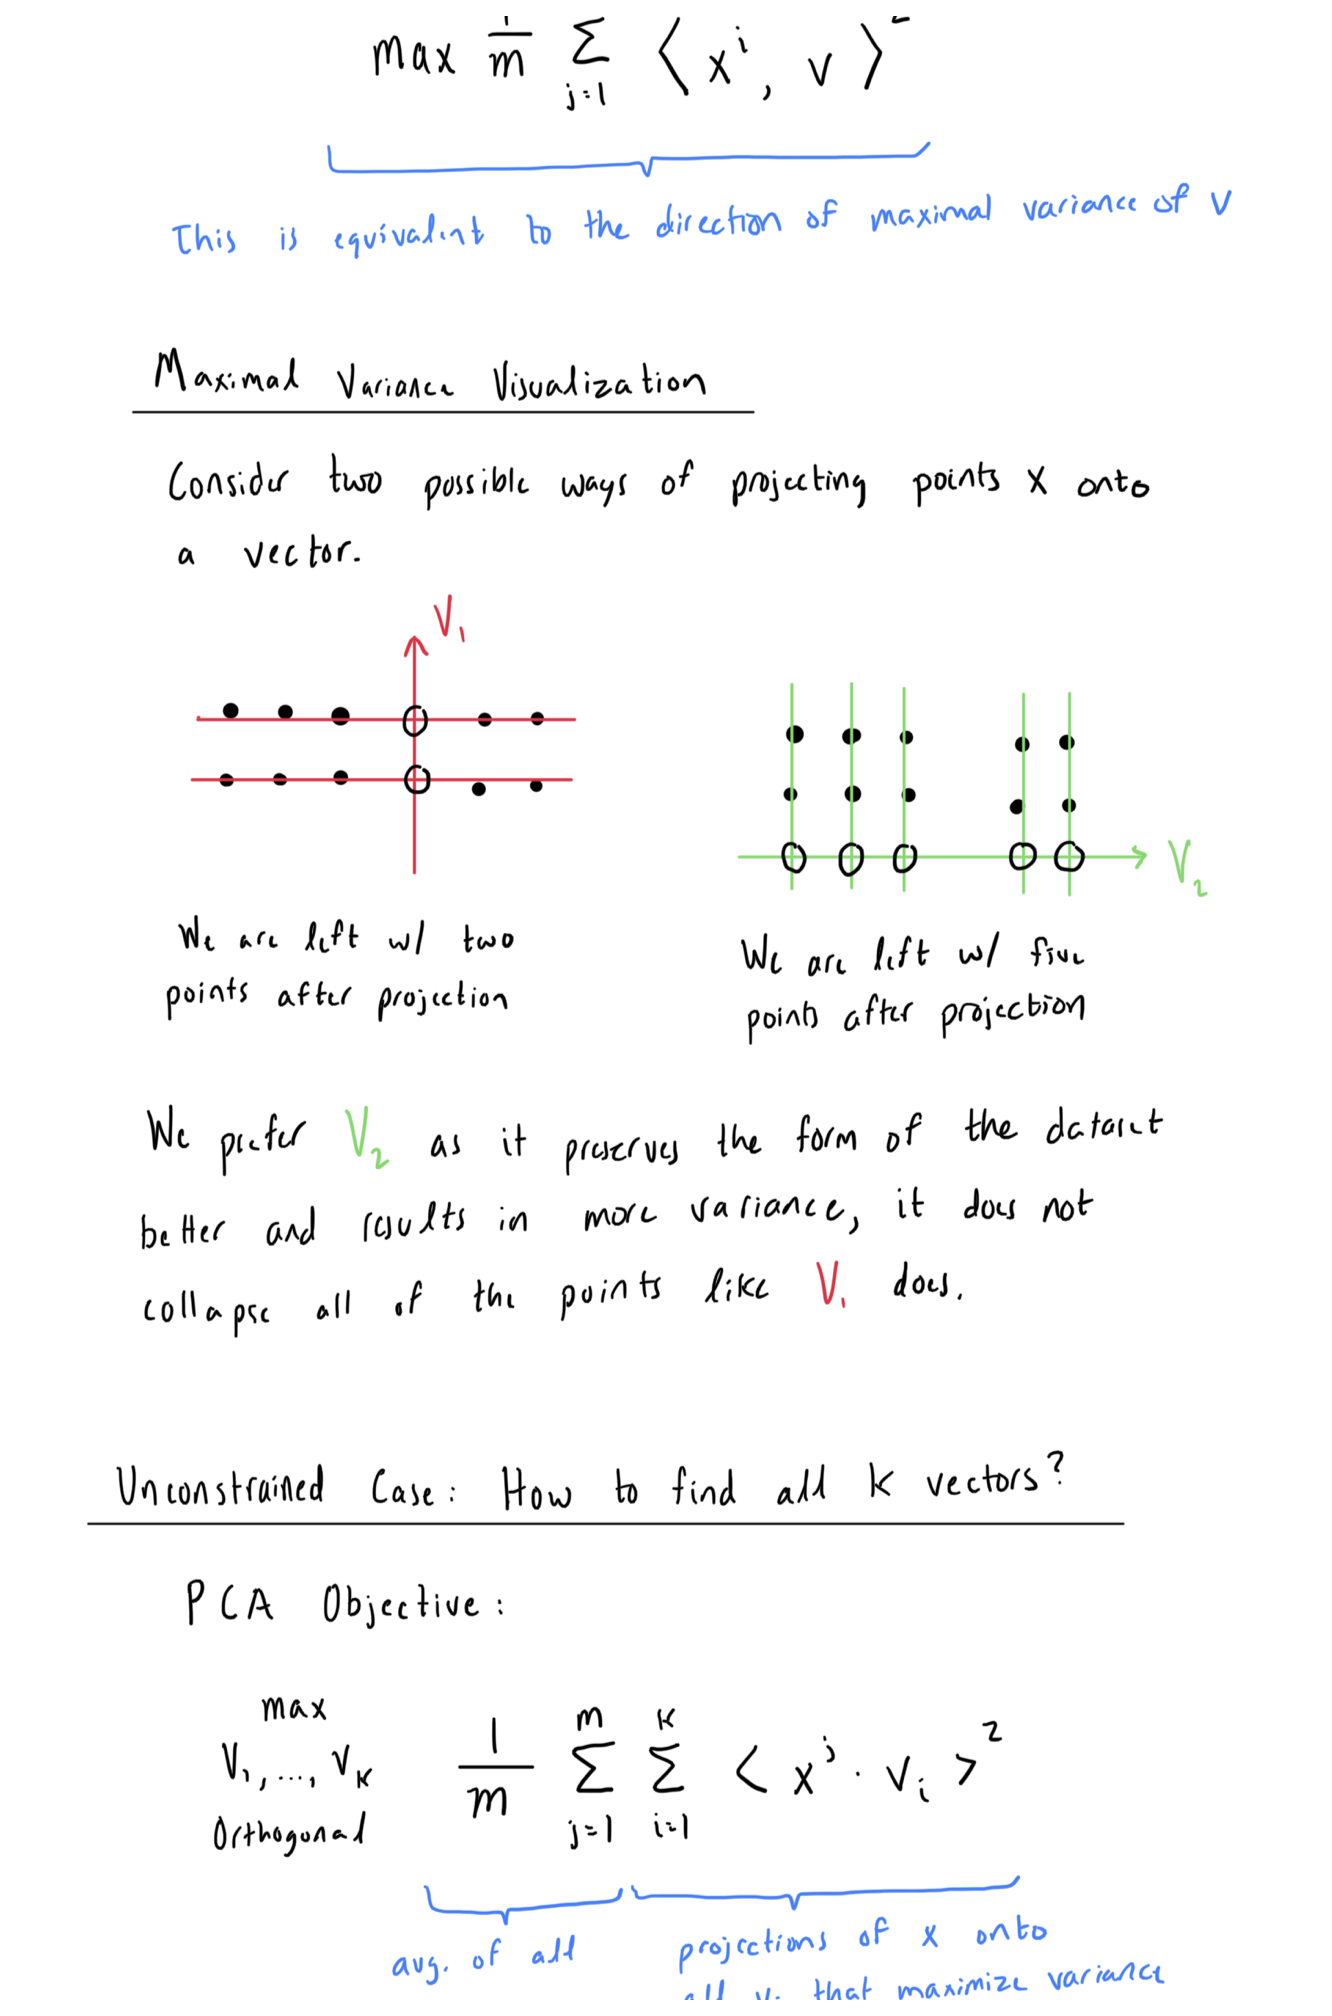 max 1/m Σ j=1 ⟨ xⁱ, v ⟩²
This is equivalent to the direction of maximal variance of v
Maximal Variance Visualization
Consider two possible ways of projecting points x onto
a vector.
V₁
V₂
We are left w/ two
points after projection
We are left w/ five
points after projection
We prefer V₂ as it preserves the form of the dataset
better and results in more variance, it does not
collapse all of the points like V₁ does.
Unconstrained Case: How to find all k vectors?
PCA Objective:
max
V₁, ..., Vₖ
Orthogonal
1/m Σ j=1 m Σ i=1 k < xʲ · vᵢ >²
avg. of all
projections of x onto
all vᵢ that maximize variance